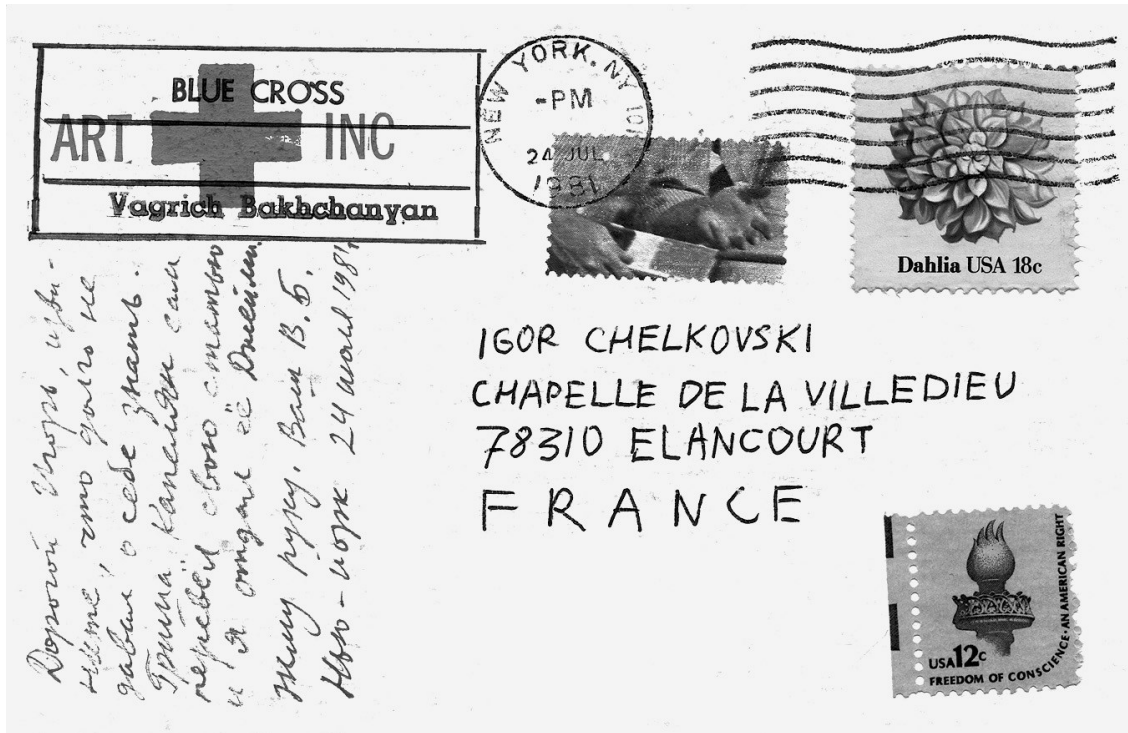 BLUE CROSS
ART INC
Vagrich Bakhchanyan
NEW YORK, NY 101
-PM
24 JUL
1981
Dahlia USA 18c
IGOR CHELKOVSKI
CHAPELLE DE LA VILLEDIEU
78310 ELANCOURT
FRANCE
USA 12c
FREEDOM OF CONSCIENCE · AN AMERICAN RIGHT
Дорогой Игорь, изви-
ните, что долго не
давал о себе знать.
Гриша Капелян сам
перевёл свою статью
и я отдал её Джейми.
Жму руку. Ваш В. Б.
Нью-йорк 24 июля 1981г.